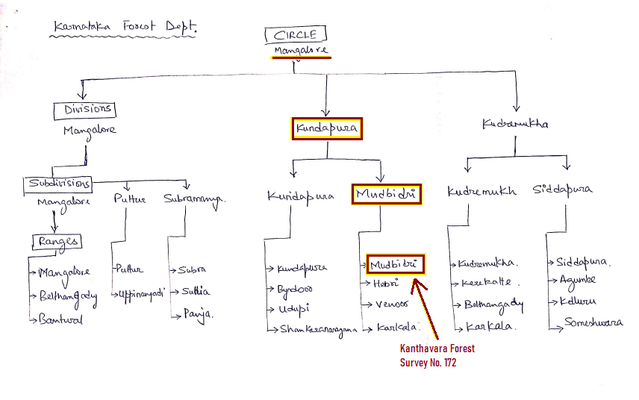 Karnataka Forest Dept.
CIRCLE
Mangalore
Divisions
Mangalore
Kundapura
Kudremukha
Subdivisions
Mangalore
Puttur
Subramanya.
Kundapura
Mudbidri
Kudremukh
Siddapura
Ranges
Mangalore
Belthangady
Bantwal
Puttur
Uppinangadi
Subra
Sullia
Panja.
Kundapura
Byndoor
Udupi
Shankaranarayana
Mudbidri
Hebri
Venoor
Karkala.
Kudremukha.
Kerekatte.
Belthangady
Karkala.
Siddapura.
Agumbe
Kolluru
Someshwara
Kanthavara Forest
Survey No. 172